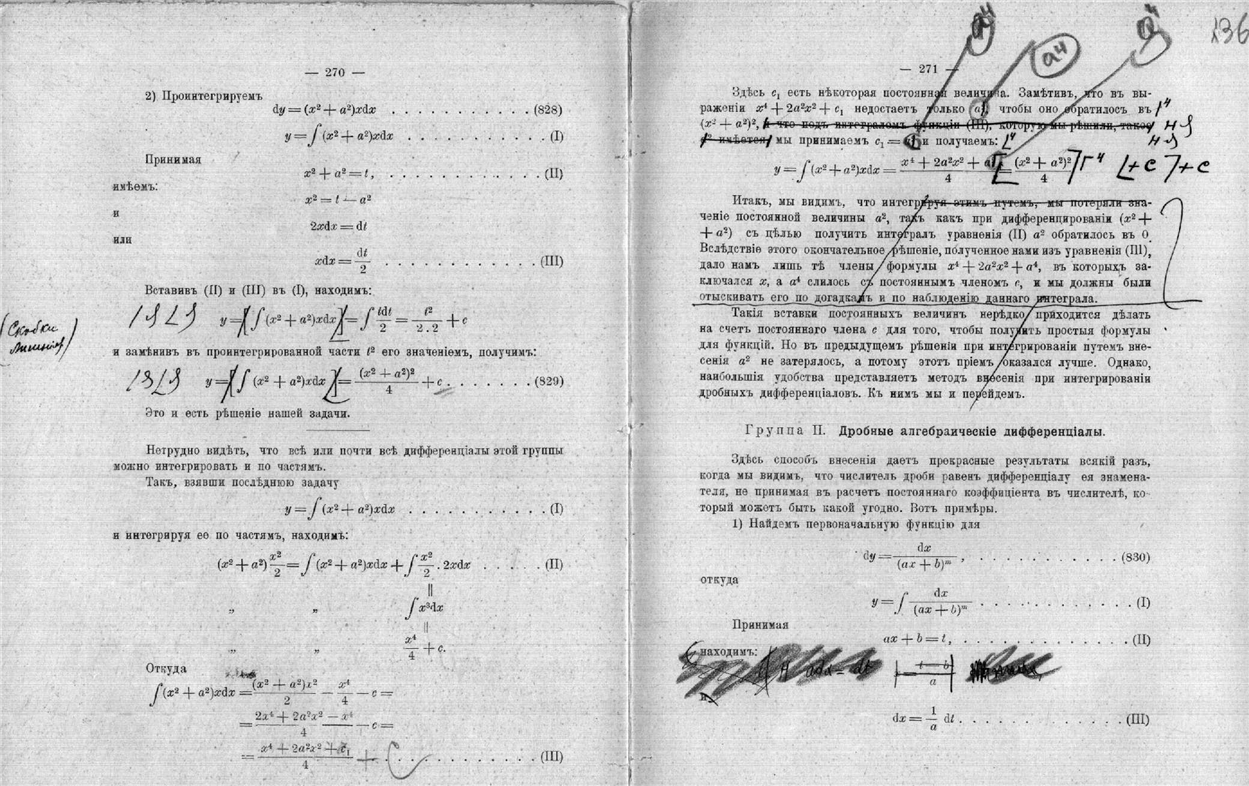 — 270 —
2) Проинтегрируемъ
dy = (x² + a²)xdx . . . . . . . . . . . (828)
y = ∫(x² + a²)xdx . . . . . . . . . . . (I)
Принимая
x² + a² = t, . . . . . . . . . . . . (II)
имѣемъ:
x² = t — a²
и
2xdx = dt
или
xdx = dt/2 . . . . . . . . . . . . (III)
Вставивъ (II) и (III) въ (I), находимъ:
y = ∫(x² + a²)xdx = ∫ tdt/2 = t²/2.2 + c
(Скобки
и замѣнивъ въ проинтегрированной части t² его значеніемъ, получимъ:
y = ∫(x² + a²)xdx = (x² + a²)²/4 + c . . . . . . . (829)
Это и есть рѣшеніе нашей задачи.
Нетрудно видѣть, что всѣ или почти всѣ дифференціалы этой группы
можно интегрировать и по частямъ.
Такъ, взявши послѣднюю задачу
y = ∫(x² + a²)xdx . . . . . . . . . . (I)
и интегрируя ее по частямъ, находимъ:
(x² + a²) x²/2 = ∫(x² + a²)xdx + ∫ x²/2 . 2xdx . . . . . (II)
||
„ „ ∫x³dx
||
„ „ x⁴/4 + c.
Откуда
∫(x² + a²)xdx = (x² + a²)x²/2 — x⁴/4 — c =
= 2x⁴ + 2a²x² — x⁴/4 — c =
= x⁴ + 2a²x² + c₁/4 + C . . . . . . . . . (III)
136
a⁴ a⁴ a⁴
— 271 —
Здѣсь c₁ есть нѣкоторая постоянная величина. Замѣтивъ, что въ вы-
раженіи x⁴ + 2a²x² + c₁ недостаетъ только a, чтобы оно обратилось въ
(x² + a²)², и что подъ интеграломъ функціи (III), которую мы рѣшили, такое
t² имѣется, мы принимаемъ c₁ = и получаемъ:
y = ∫(x² + a²)xdx = x⁴ + 2a²x² + a/4 = (x² + a²)²/4 + c + c
Итакъ, мы видимъ, что интегрируя этимъ путемъ, мы потеряли зна-
ченіе постоянной величины a², такъ какъ при дифференцированіи (x² +
+ a²) съ цѣлью получить интегралъ уравненія (II) a² обратилось въ 0.
Вслѣдствіе этого окончательное рѣшеніе, полученное нами изъ уравненія (III),
дало намъ лишь тѣ члены формулы x⁴ + 2a²x² + a⁴, въ которыхъ за-
ключался x, а a⁴ слилось съ постояннымъ членомъ c, и мы должны были
отыскивать его по догадкамъ и по наблюденію даннаго интеграла.
Такія вставки постоянныхъ величинъ нерѣдко приходится дѣлать
на счетъ постояннаго члена c для того, чтобы получить простыя формулы
для функцій. Но въ предыдущемъ рѣшеніи при интегрированіи путемъ вне-
сенія a² не затерялось, а потому этотъ пріемъ оказался лучше. Однако,
наибольшія удобства представляетъ методъ внесенія при интегрированіи
дробныхъ дифференціаловъ. Къ нимъ мы и перейдемъ.
Группа II. Дробные алгебраическіе дифференціалы.
Здѣсь способъ внесенія даетъ прекрасные результаты всякій разъ,
когда мы видимъ, что числитель дроби равенъ дифференціалу ея знамена-
теля, не принимая въ расчетъ постояннаго коэффиціента въ числителѣ, ко-
торый можетъ быть какой угодно. Вотъ примѣры.
1) Найдемъ первоначальную функцію для
dy = dx/(ax + b)ᵐ , . . . . . . . . . . (830)
откуда
y = ∫ dx/(ax + b)ᵐ . . . . . . . . . . (I)
Принимая
ax + b = t, . . . . . . . . . . . . (II)
находимъ:
adx = dt t — b/a
dx = 1/a dt . . . . . . . . . . . . (III)